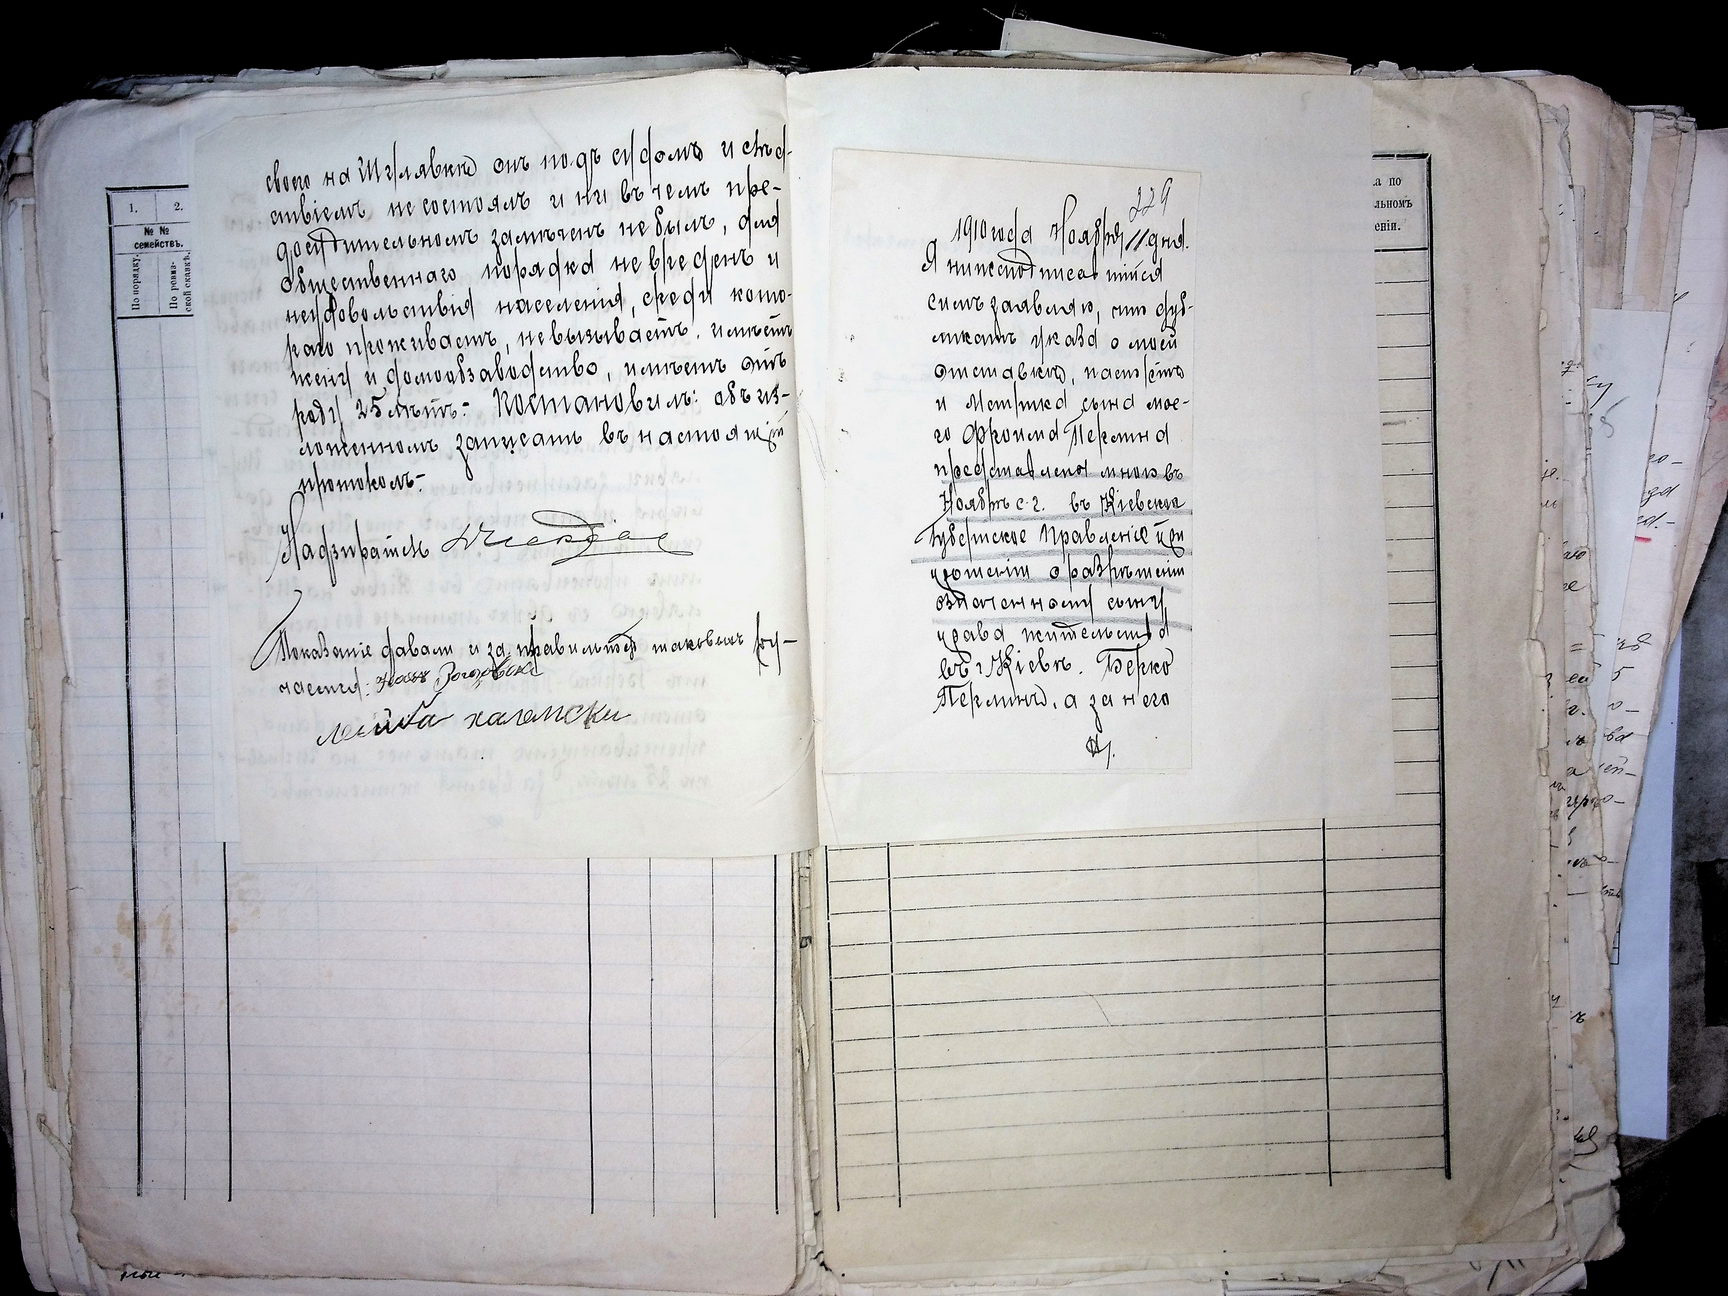 своего на Шулявкѣ онъ подъ судомъ и слѣд-
ствіемъ не состоялъ и ни въ чемъ пре-
досудительномъ замѣченъ не былъ, для
общественнаго порядка не вреденъ и
неудовольствія населенія, среди кото-
раго проживаетъ, не вызываетъ. имѣетъ
жену и домообзаводство, имѣетъ отъ
роду 25 лѣтъ. Постановилъ: объ из-
ложенномъ записать въ настоящій
протоколъ.
Надзиратель
Показаніе давали и за правильность таковыхъ ру-
чаемся:
Лейба
229
1910 года Ноября 11 дня.
Я нижеподписавшійся
симъ заявляю, что дуб-
ликатъ указа о моей
отставкѣ, паспортъ
и Метрика сына мое-
го Фроима Перлина
представлена мною въ
Ноябрѣ с.г. въ Кіевское
Губернское Правленіе при
прошеніи о разрѣшеніи
означенному сыну
права жительства
въ г. Кіевѣ. Берко
Перлинъ, а за него
1.
2.
№ №
семействъ.
По порядку.
По ревиз-
ской сказкѣ.
а по
льномъ
еніи.